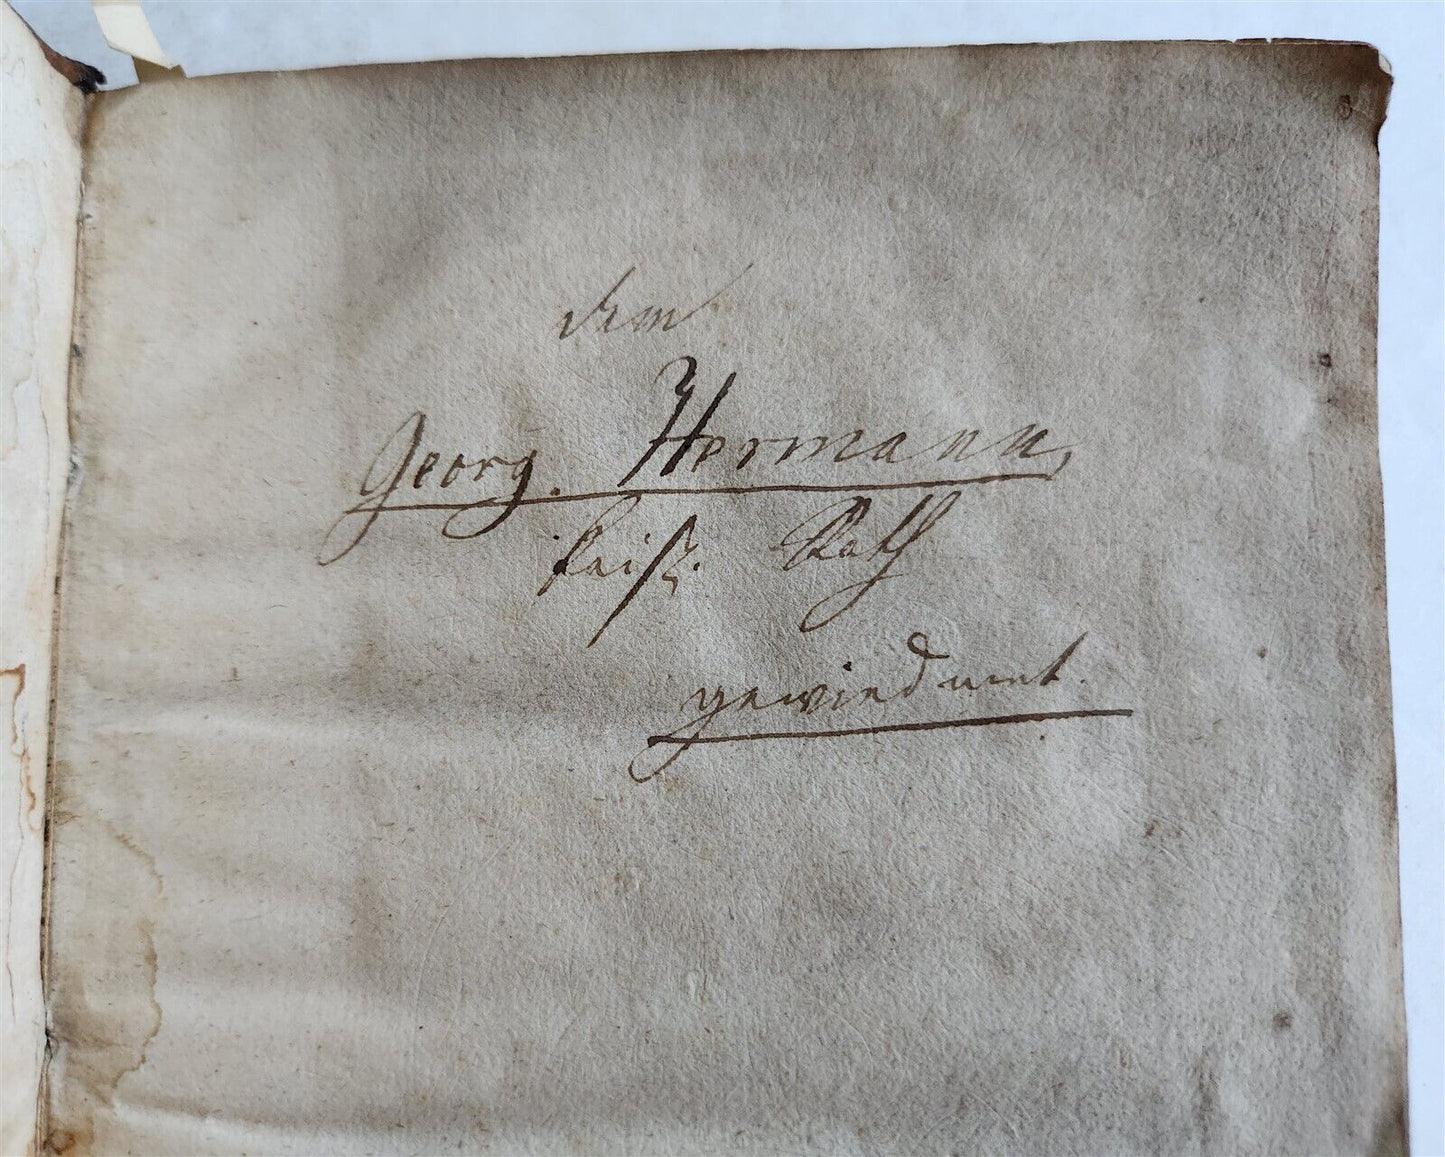 dem
Georg. Hermann,
keiß. Rath
gewiedmet.